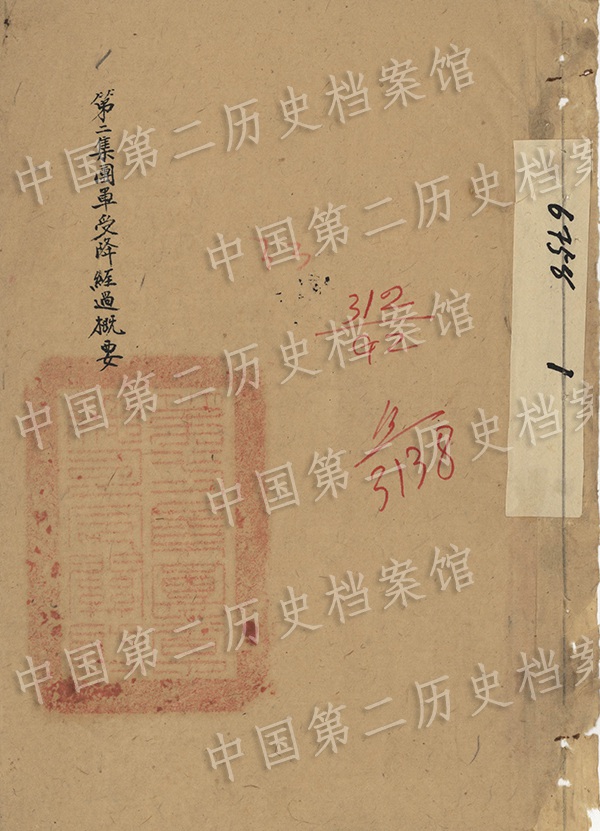 第二集團军受降經過概要
6758 1
312
42
13
3138
中国第二历史档案馆
中国第二历史档案馆
中国第二历史档案馆
中国第二历史档案馆
中国第二历史档案馆
中国第二历史档案馆